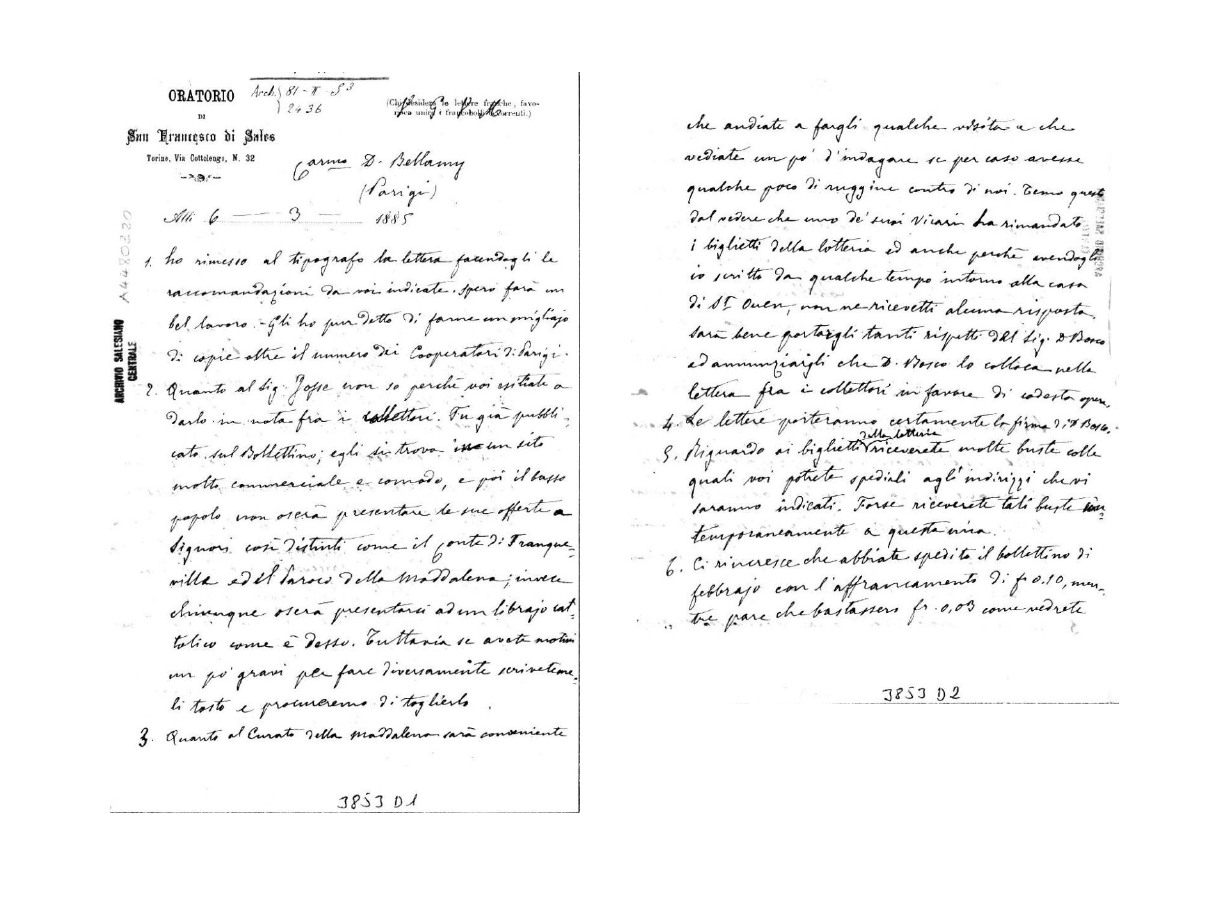 Arch. 81-II-S3
2436
ORATORIO
DI
San Francesco di Sales
Torino, Via Cottolengo, N. 32
(Chi desidera le lettere franche, favo-
risca unire i francobolli occorrenti.)
Carmo D. Bellamy
(Parigi)
Alli 6 — 3 — 1885
A4480220
ARCHIVIO SALESIANO
CENTRALE
1. Ho rimesso al tipografo la lettera facendogli le
raccomandazioni da voi indicate. Spero farà un
bel lavoro. - Gli ho pur detto di farne un migliajo
di copie oltre il numero dei Cooperatori di Parigi.
2. Quanto al Sig. Josse non so perchè voi esitiate a
darlo in nota fra i collettori. Fu già pubbli-
cato sul Bollettino; egli si trova in un sito
molto commerciale e comodo, e poi il basso
popolo non oserà presentare le sue offerte a
Signori così distinti come il Conte di Franque-
villa ed il Paroco della Maddalena; invece
chiunque oserà presentarsi ad un librajo cat
tolico come è desso. Tuttavia se avete motivi
un po' gravi per fare diversamente scriveteme-
li tosto e procureremo di toglierlo.
3. Quanto al Curato della Maddalena sarà conveniente
3853 D1
che andiate a fargli qualche visita e che
vediate un po' d'indagare se per caso avesse
qualche poco di ruggine contro di noi. Temo questo
dal vedere che uno de' suoi Vicarii ha rimandato
i biglietti della lotteria ed anche perchè avendogli
io scritto da qualche tempo intorno alla casa
di St Ouen, non ne ricevetti alcuna risposta.
Sarà bene portargli tanti rispetti del Sig. D Bosco
ed annunziargli che D. Bosco lo colloca nella
lettera fra i collettori in favore di codesta opera.
4. Le lettere porteranno certamente la firma di D Bosco.
5. Riguardo ai biglietti della lotteria riceverete molte buste colle
quali voi potrete spedirli agli indirizzi che vi
saranno indicati. Forse riceverete tali buste con-
temporaneamente a questa mia.
6. Ci rincresce che abbiate spedito il bollettino di
febbrajo con l'affrancamento di fr 0.10, men-
tre pare che bastassero fr. 0,03 come vedrete
3853 D2